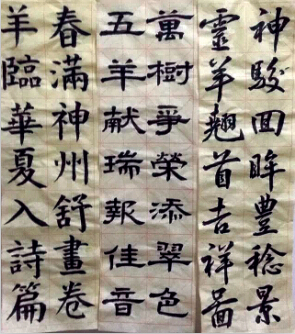 神駿回眸豊稔景
靈羊翹首吉祥啚
萬樹爭榮添翠色
五羊献瑞報佳音
春滿神州舒畫卷
羊臨華夏入詩篇